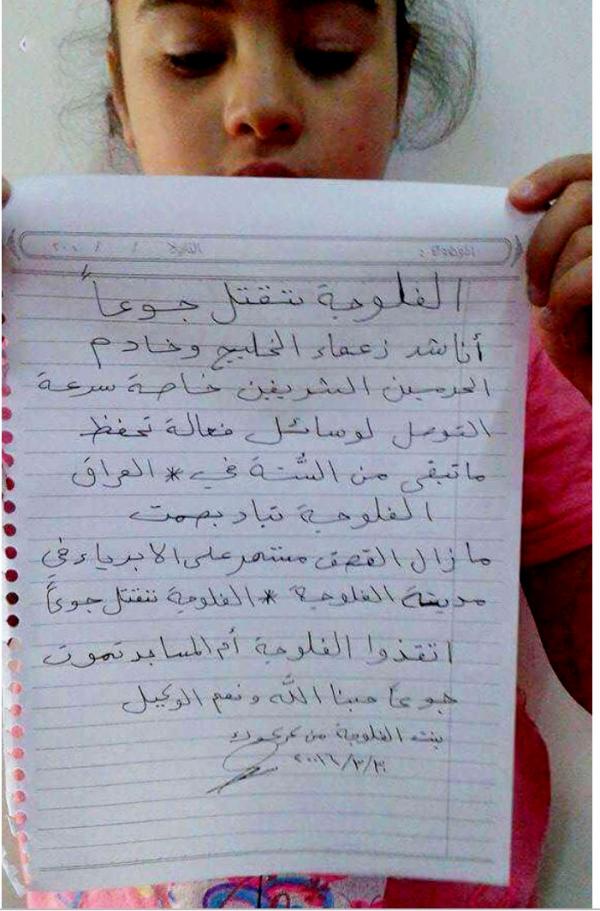 الفلوجة تتقتل جوعاً
أناشد زعماء الخليج وخادم
الحرمين الشريفين خاصة سرعة
التوصل لوسائل فعالة تحفظ
ماتبقى من السُّنة في * العراق
الفلوجة تباد بصمت
مازال القصف مستمر على الابرياء في
مدينة الفلوجة * الفلوجة تتقتل جوعاً
انقذوا الفلوجة أم المساجد تموت
جوعاً حسبنا الله ونعم الوكيل
بنت الفلوجة من كركوك
٢٠١٦/٣/٣٠